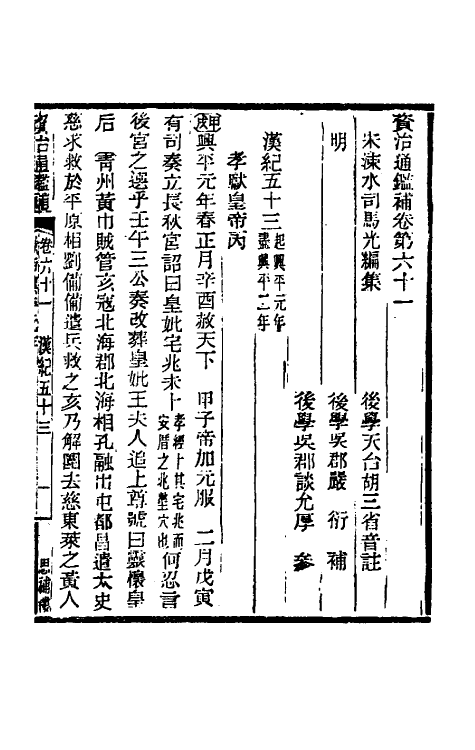 資治通鑑補卷第六十一
宋涑水司馬光編集
後學天台胡三省音註
明
後學吳郡嚴衍補
後學吳郡談允厚參
漢紀五十三起興平元年盡興平二年
孝獻皇帝丙
興平元年春正月辛酉赦天下 甲子帝加元服 二月戊寅
有司奏立長秋宮詔曰皇妣宅兆未卜孝經卜其宅兆而安厝之兆塋穴也何忍言
後宮之選乎壬午三公奏改葬皇妣王夫人追上尊號曰靈懷皇
后 青州黃巾賊管亥寇北海郡北海相孔融出屯都昌遣太史
慈求救於平原相劉備備遣兵救之亥乃解圍去慈東萊之黃人
資治通鑑補
卷六十一
漢紀五十三
一
思補樓